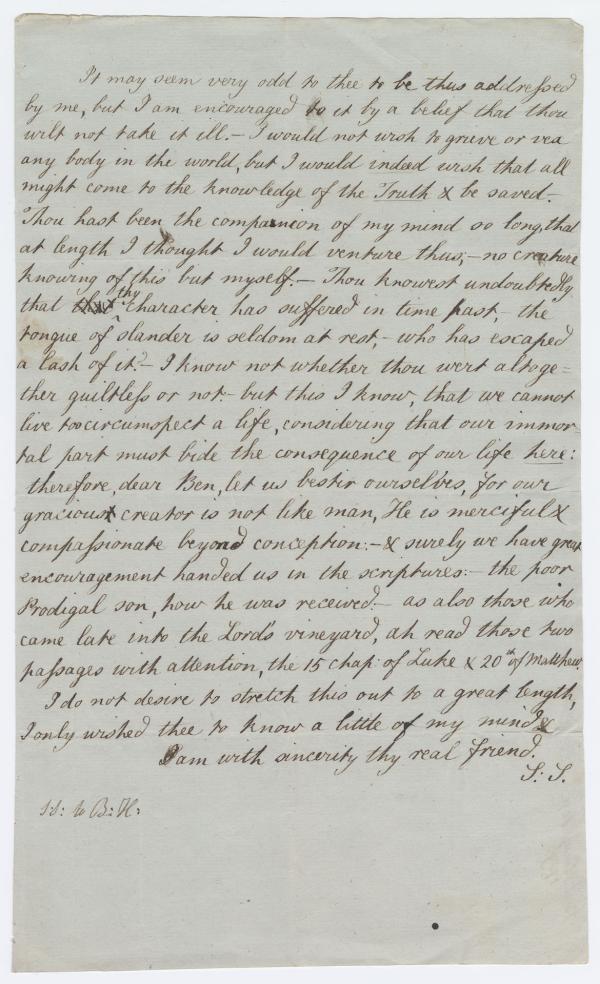 It may seem very odd to thee to be thus addressed
by me, but I am encouraged to it by a belief that thou
wilt not take it ill.— I would not wish to grieve or vex
any body in the world, but I would indeed wish that all
might come to the knowledge of the Truth & be saved.
Thou hast been the companion of my mind so long, that
at length I thought I would venture thus;— no creature
knowing of this but myself.— Thou knowest undoubtedly
that thy character has suffered in time past,— the
tongue of slander is seldom at rest,— who has escaped
a lash of it?— I know not whether thou wert altoge=
ther guiltless or not:— but this I know, that we cannot
live too circumspect a life, considering that our immor=
tal part must bide the consequence of our life here:
therefore, dear Ben, let us bestir ourselves, for our
gracious creator is not like man, He is merciful &
compassionate beyond conception:— & surely we have great
encouragement handed us in the scriptures:— the poor
Prodigal son, how he was received:— as also those who
came late into the Lord's vineyard, ah read those two
passages with attention, the 15 chap: of Luke & 20th of Matthew.
I do not desire to stretch this out to a great length,
I only wished thee to know a little of my mind &
I am with sincerity thy real friend.
S: S.
S:S: to B: H: